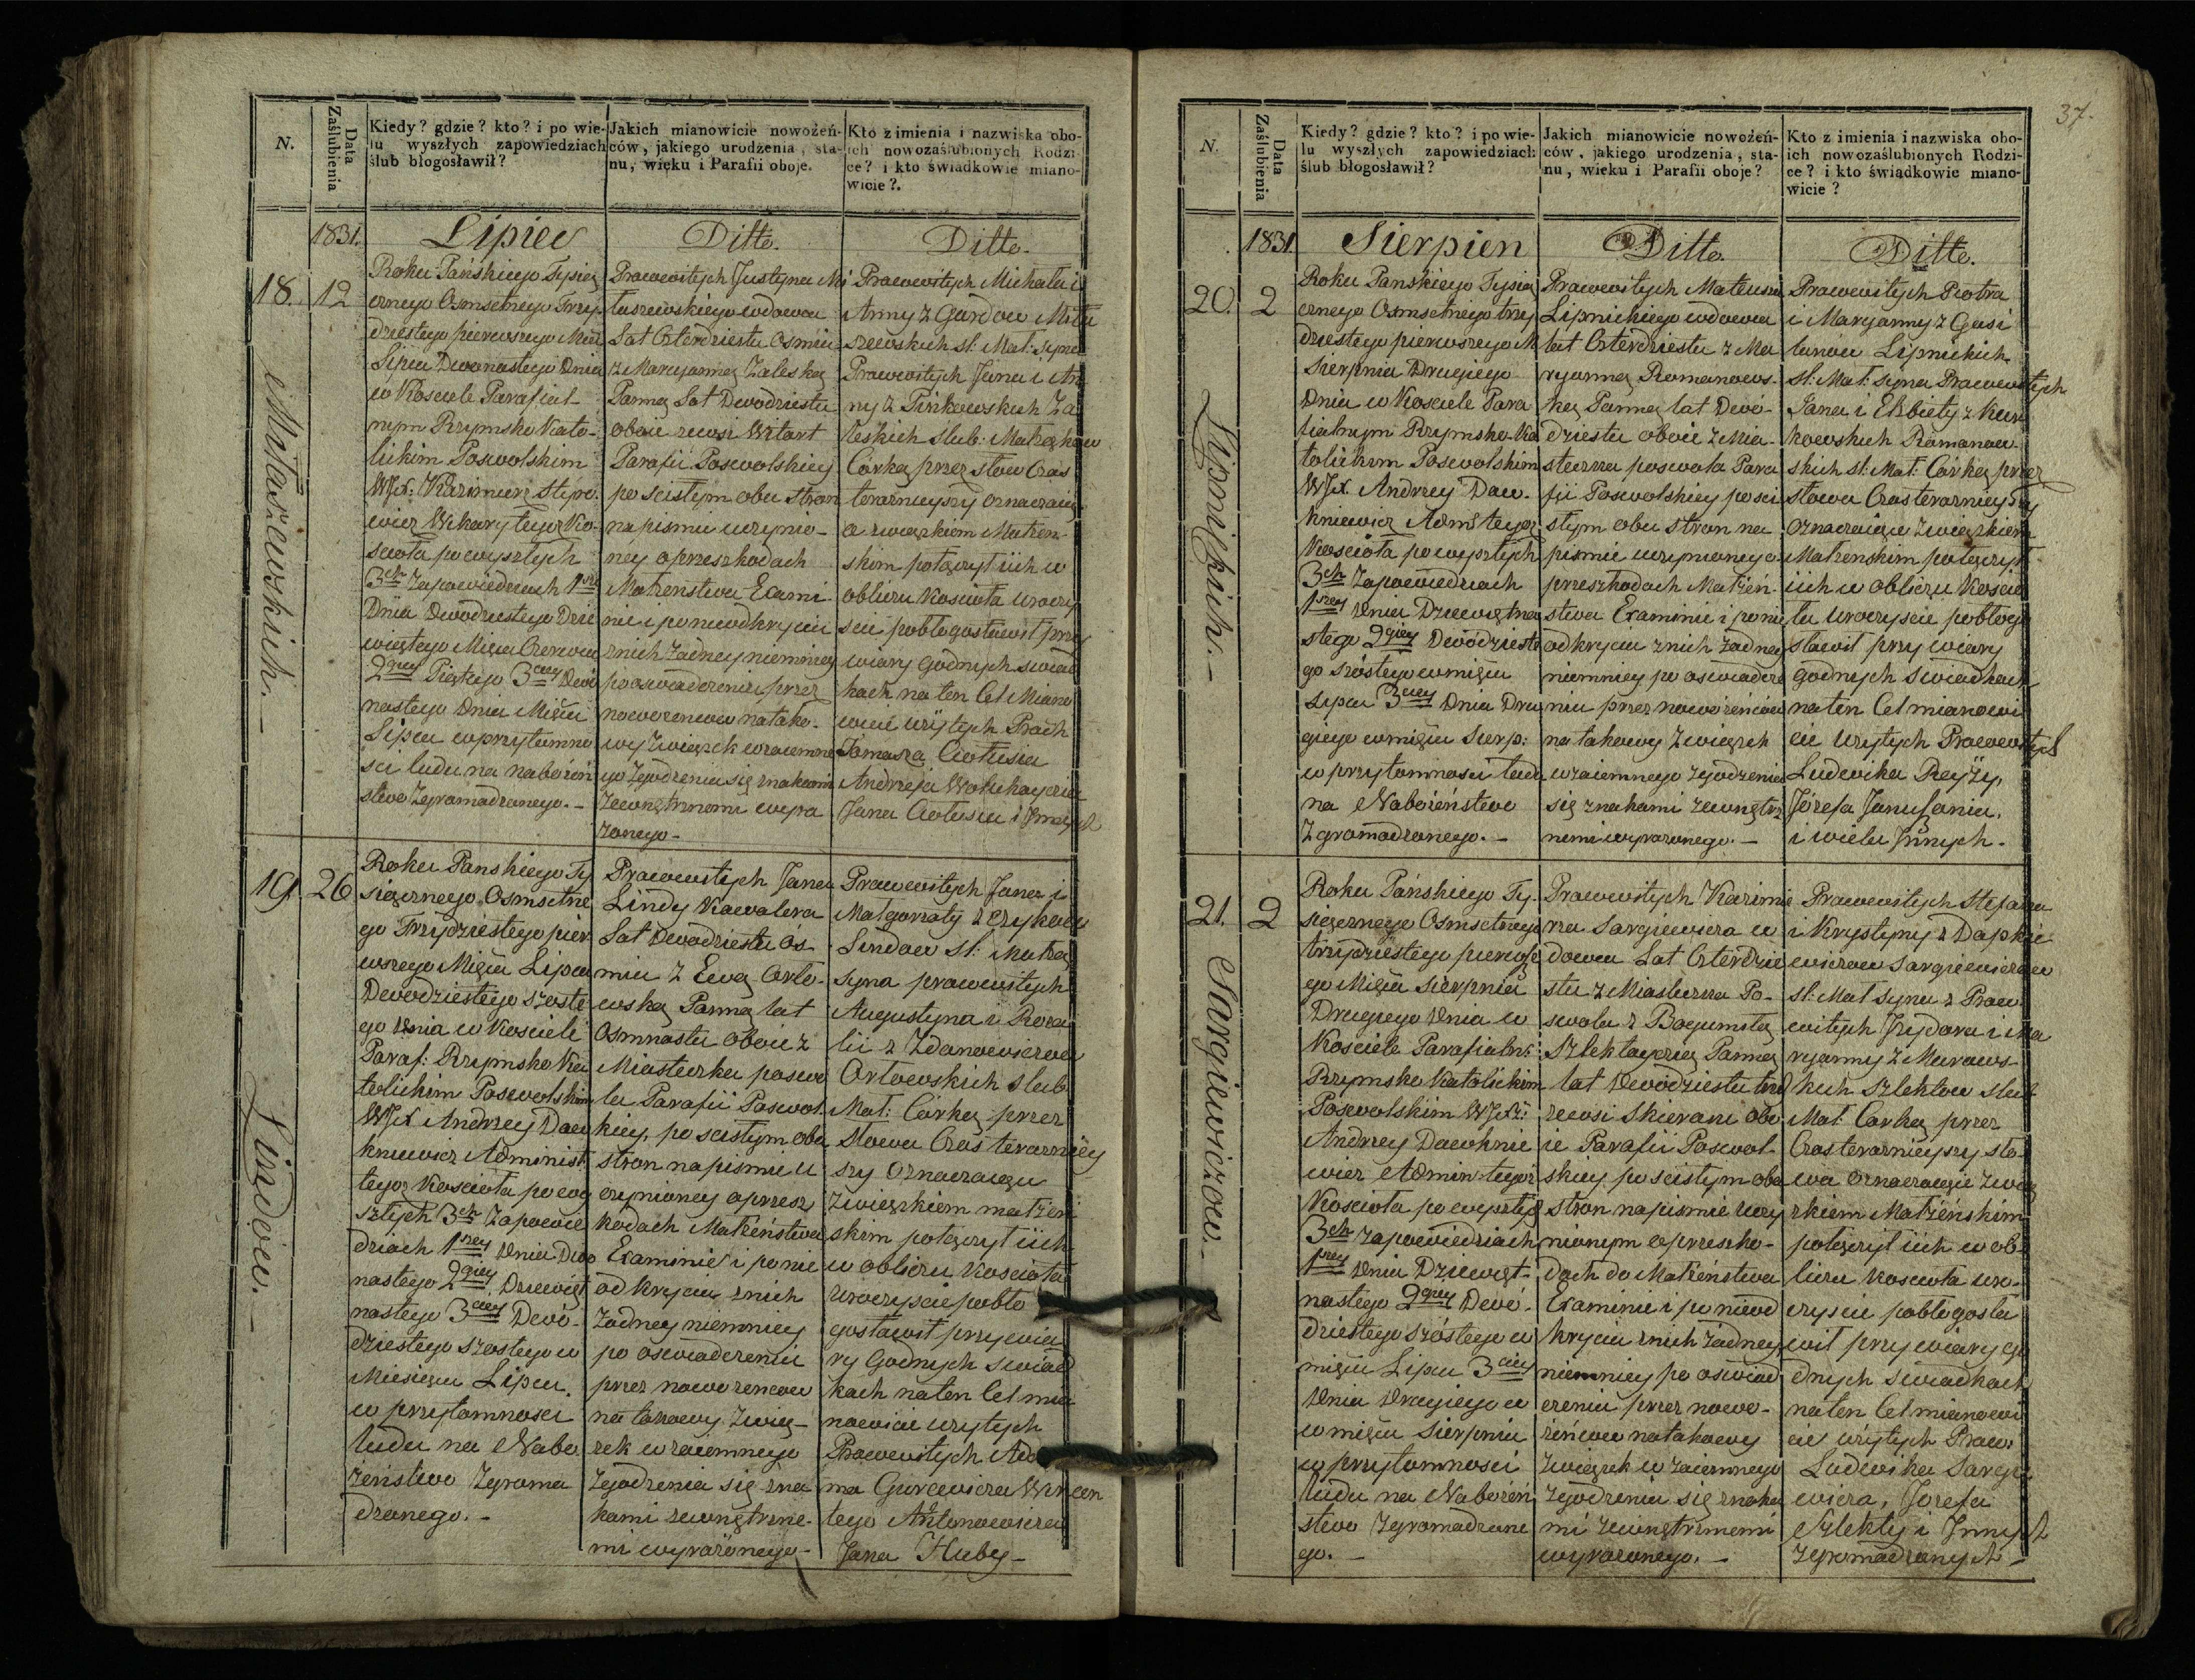 N.
Data Zaślubienia
Kiedy? gdzie? kto? i po wie-
lu wyszłych zapowiedziach
ślub błogosławił?
Jakich mianowicie nowożeń-
ców, jakiego urodzenia, sta-
nu, wieku i Parafii oboje.
Kto z imienia i nazwiska obo-
ich nowozaślubionych Rodzi-
ce? i kto świadkowie miano-
wicie?.
1831.
Lipiec
Ditto.
Ditto.
18.
12
Mitaszewskich. -
Roku Pańskiego Tysią
cznego Osmsetnego Trzy-
dziestego pierwszego Mca
Lipca Dwonastego Dnia
w Kosciele Parafial
nym Rzymsko Kato-
lickim Poswolskim
WJX: Kazimierz Stepo-
wicz Wikary tegoż Ko-
scioła po wyszłych
3ch Zapowiedziach 1sza
Dnia Dwódziestego Dzie
wiątego Mięca Czerwca
2giey Piątego 3ciey Dwu
nastego Dnia Mięca
Lipca w przytomno
sci ludu na nabożeń
stwo Zgromadzonego. -
Prawowitych Justyna Mi
taszewskiego wdowca
Lat Czterdziestu Osmiu
z Maryanną Zaleską
Panną Lat Dwodziestu
oboie zewsi Wztart
Parafii Poswolskiey
po scistym obu stron
na pismie uczynio-
ney o przeszkodach
Matzenstwa Exami-
nie i po nieodkryciu
znich żadney niemniey
po oswiadczeniu przez
nowozencow na tako-
wy Związek wzaiemne
go Zgodzenia się znakami
Zewnętrznemi wyra
żonego -
Prawowitych Michała i
Anny z Gurdow Mita
szewskich sl: Mał: syna
Prawowitych Jana i An
ny z Pinkowskich Za
leskich slub: Małżąkow
Córką przez słow Czas
teraznieyszy oznaczaią
ce związkiem Małżeń-
skim połączył iich w
obliczu Kościoła uroczy
scie pobłogosławił przy
wiary godnych swiad
kach na ten Cel Miano
wicie użytych Prach
Tomasza Ciotusia
Andrzeja Wotukayczia
Jana Ciotusia i Innych
19.
26
Lindow. -
Roku Panskiego Ty
siącznego Osmsetne
go Trzydziestego pier
wszego Mięca Lipca
Dwodziestego szoste
go Dnia w Kosciele
Paraf: Rzymsko Ka
tolickim Poswolskim
WJX Andrzey Daw
kniewicz Administ
tegoż Kościoła po wy
szłych 3ch Zapowie
dziach 1szey Dnia Dwu
nastego 2giey Dziewięt
nastego 3ciey Dwó-
dziestego szostego w
Miesięcu Lipcu.
w przytomnosci
ludu na Nabo
żeństwo Zgroma
dzonego. -
Prawowitych Jana
Lindy Kawalera
Lat Dwodziestu Oś-
miu z Ewą Orło-
wską Panną lat
Osmnastu oboie z
Miasteczka poswo
la Parafii Poswol
kiey, po scistym obu
stron na pismie u
czynioney o przesz
kodach Małżeństwa
Examinie i po nie
odkryciu znich
Żadney niemniey
po oswiadczeniu
przez nowozencow
na takowy Zwią-
zek wzaiemnego
Zgodzenia się zna
kami zewnętrzne-
mi wyrażonego -
Prawowitych Jana i
Małgorzaty z Czykow
Lindow sl: Małżą
syna prawowitych
Augustyna i Roza
lii z Zdanowiczow
Orłowskich slub
Mał: Córką przez
Słowa Czas teraznièy
szy oznaczaiące
Związkiem małżeń
skim połączył iich
w obliczu Kościoła
uroczyscie pobło
gosławił przy wia
ry Godnych swiad
kach na ten Cel mia
nowicie użytych
Prawowitych Ada
ma Gurewicza Wincen
tego Antonowicza
Jana Huby -
37.
N.
Data Zaślubienia
Kiedy? gdzie? kto? i po wie-
lu wyszłych zapowiedziach
ślub błogosławił?
Jakich mianowicie nowożeń-
ców, jakiego urodzenia, sta-
nu, wieku i Parafii oboje?
Kto z imienia i nazwiska obo-
ich nowozaślubionych Rodzi-
ce? i kto świadkowie miano-
wicie?
1831.
Sierpien
Ditto.
Ditto.
20.
2
Lipnickich. -
Roku Panskiego Tysią
cznego Osmsetnego trzy
dziestego pierwszego M
Sierpnia Drugiego
Dnia w Kosciele Para
fialnym Rzymsko-Ka
tolickim Poswolskim
WJX. Andrzey Daw-
kniewicz Adm̄s tegoz
Kościoła po wyszłych
3ch Zapowiedziach
1szey Dnia Dziewiętna
stego 2giey Dwódzieste
go szóstego w mięcu
Lipcu 3ciey Dnia Dru
giego w mięcu Sierp:
w przytomnosci ludu
na Nabożeństwo
Zgromadzonego. -
Prawowitych Mateusza
Lipnickiego wdowca
lat Czterdziestu z Ma
ryanną Romanows-
ką Panną lat Dwó-
dziestu oboie z Mia-
steczka poswola Para
fii Poswolskiey po sci
stym obu stron na
pismie uczynionego
przeszkodach Małżeń-
stwa Examinie i po nie
odkryciu znich żadney
niemniey po oswiadcze
niu przez nowożeńców
na takowy Związek
wzaiemnego zgodzenia
się znakami zewnętrz
nemi wyrażonego. -
Prawowitych Piotra
i Maryanny z Gasi
tanow Lipnickich
sl: Mał: syna Prawowitych
Jana i Elżbiety z Kur
kowskich Romanow-
skich sl: Mał: Córką przez
słowa Czas teraznieyszy
oznaczaiące Związkiem
Małżenskim połączył
iich w obliczu Koscio
ła uroczyscie pobłogo
sławił przy wiary
godnych Swiadkach
na ten Cel mianowi
cie użytych Prawowitych
Ludwika Reyży,
Józefa Janusania,
i wielu Innych.
21.
2
Sargiewiczow. -
Roku Pańskiego Ty-
siącznego Osmsetnego
trzydziestego pierwsze
go Mięca Sierpnia
Drugiego Dnia w
Kosciele Parafialn:
Rzymsko Katolickim
Poswolskim WJX:
Andrzey Dawknie
wicz Admin tegoż
Kościoła po wyszłych
3ch Zapowiedziach
1szey Dnia Dziewięt-
nastego 2giey Dwó-
dziestego szóstego w
mięcu Lipcu 3ciey
Dnia Drugiego w
w mięcu Sierpniu
w przytomności
ludu na Nabożeń
stwo Zgromadzone
go. -
Prawowitych Kazimie
rza Sargiewicza w
dowca Lat Czterdzie
stu z Miasteczka Po-
swola z Bogumiłą
Szlektayczią Panną
lat Dwódziestu trzech
zewsi Skierani obo
ie Parafii Poswol-
skiey po scistym obu
stron na pismie uczy
nionym o przeszko-
dach do Małżeństwa
Examinie i po nieod
kryciu znich żadney
niemniey po oswiad
czeniu przez nowo-
żeńcow na takowy
Związek wzaiemnego
Zgodzenia się znaka
mi zewnętrznemi
wyrażonego. -
Prawowitych Stefana
i Krystyny z Dapkie
wiczow Sargiewiczow
sl: Mał syna z Praw
witych Jzydora i Ma
ryanny z Muraws-
kich Szlektow slub
Mał: Córką przez
Czas teraznieyszy sło-
wa oznaczaiące Zwią
zkiem Małżeńskim
połączył iich w ob-
liczu Kościoła uro-
czyscie pobłogosła
wił przy wiary go
dnych swiadkach
na ten Cel mianowi
cie użytych Praw:
Ludwika Sargie
wicza, Jozefa
Szlekty i Innych
zgromadzonych -